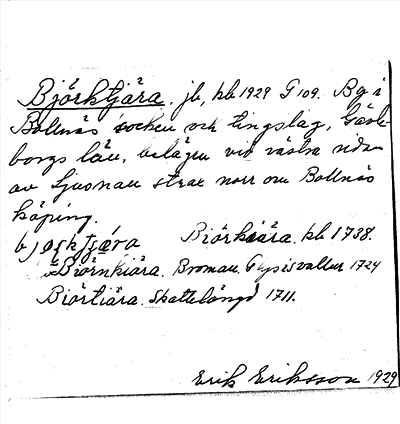 Björktjära, jb, kb 1929 G 109. By i
Bollnäs socken och tingslag, Gävle
borgs län, belägen vid västra sidan
av Ljusnan strax norr om Bollnäs
köping.
Biörkiära. kb 1738.
Biörnkiära. Broman. Glysisvallur 1724
Biörtiära. Skattelängd 1711.
Erik Eriksson 1929